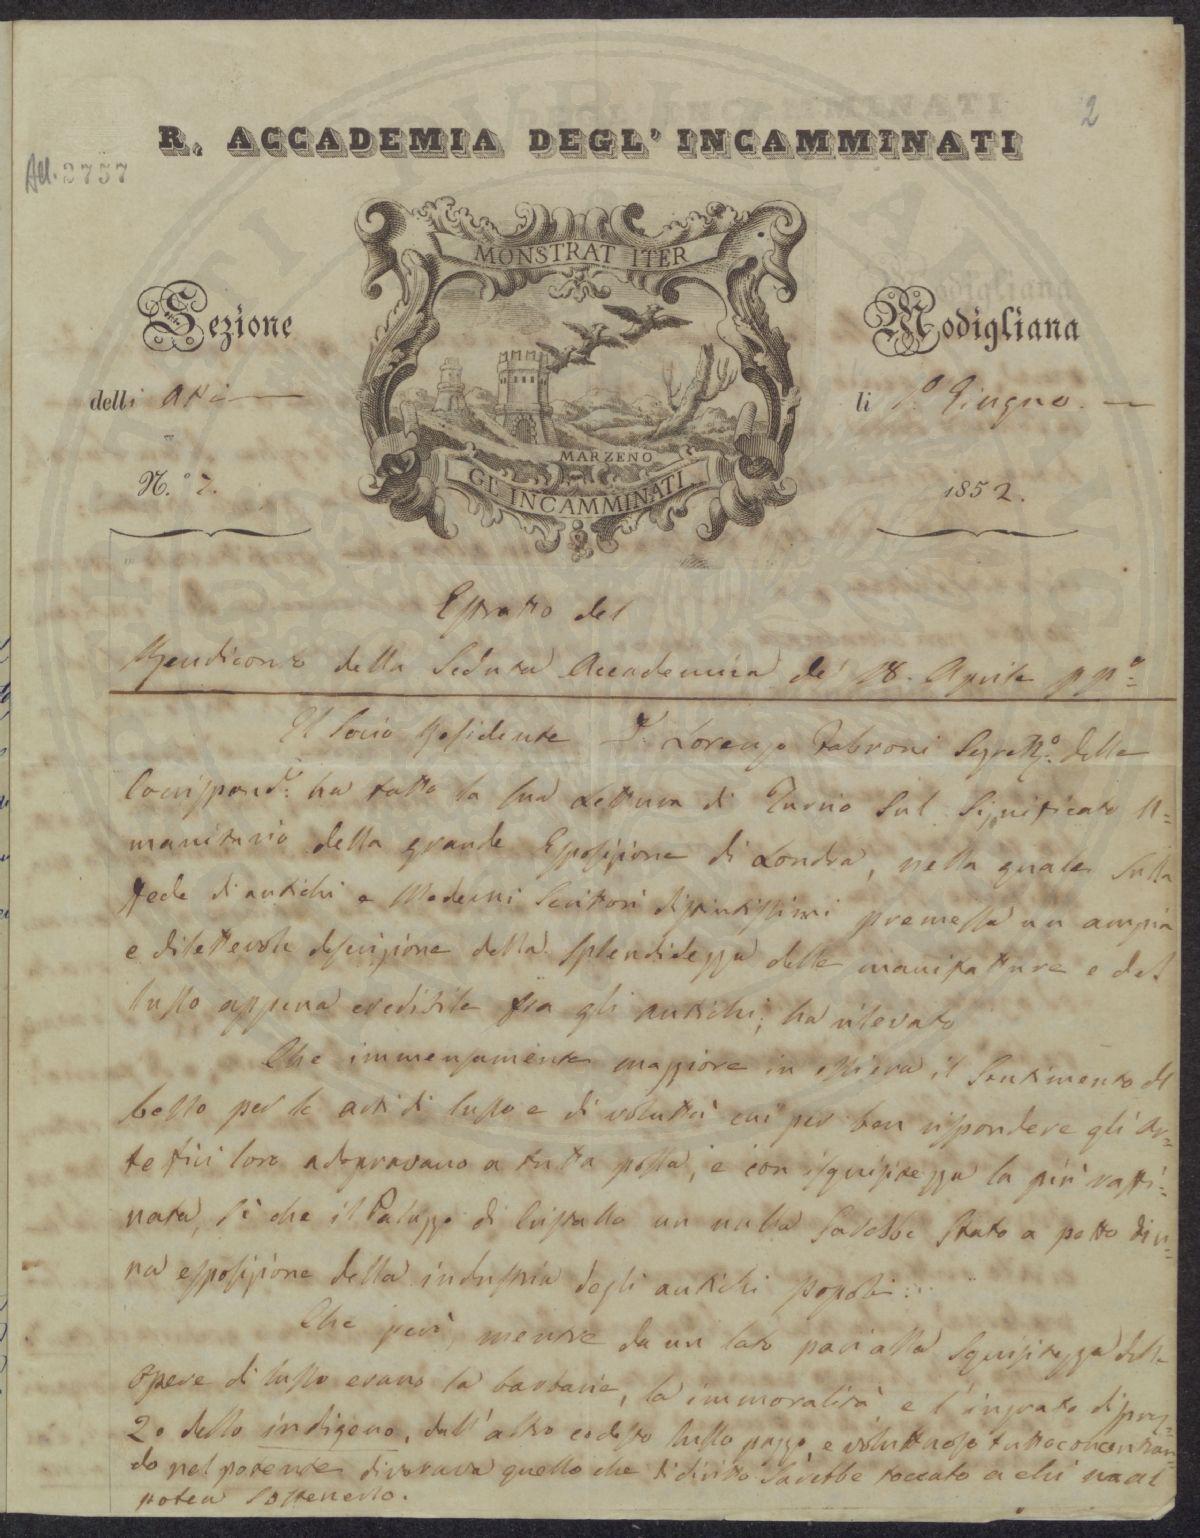 2
R. ACCADEMIA DEGL' INCAMMINATI
All. 2757
MONSTRAT ITER
Sezione
Modigliana
delli Arti
li 1.º Giugno.
MARZENO
GL' INCAMMINATI
N.º 7.
1852.
Estratto del
Rendiconto della Seduta Accademica de' 18. Aprile ppº
Il Socio Residente D. Lorenzo Fabroni Segretº. delle
Corrispondᶻᵉ. ha fatto la sua Lettura di Turno sul significato U=
manitario della grande Esposizione di Londra, nella quale sulla
fede di antichi e Moderni Scrittori distintissimi premessa un ampia
e dilettevole descrizione della splendidezza delle manifatture e del
lusso appena credibile fra gli antichi; ha rilevato
Che immensamente maggiore in essi era il Sentimento del
bello per le arti di lusso e di voluttà cui per ben rispondere gli Ar=
tefici loro adopravano a tutta possa, e con isquisitezza la più raffi=
nata, sì che il Palazzo di Cristallo un nulla sarebbe stato a petto di u=
na esposizione della industria degli antichi popoli...
Che però, mentre da un lato pari alla Squisitezza delle
opere di lusso erano la barbarie, la immoralità e l'ingrato disprez=
zo dello indigeno, dall'altro codesto lusso pazzo, e voluttuoso tutto concentran=
do nel potente divorava quello che di diritto sarebbe toccato a chi
potea sostenerlo.